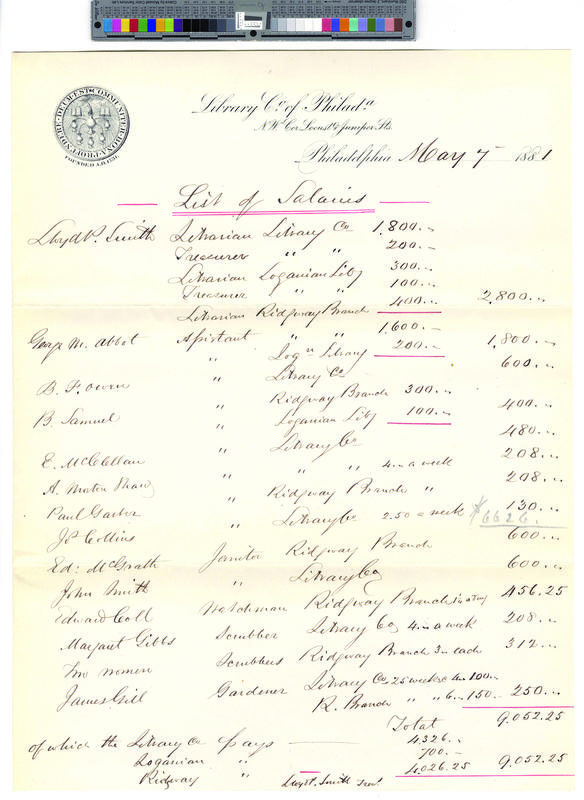 Library Co. of Philada.
N.W. Cor. Locust & Juniper Sts.
FOUNDED A.D. 1731.
Philadelphia May 7 1881
List of Salaries
Lloyd P. Smith Librarian Library Co 1,800.–
Treasurer " " 200.–
Librarian Loganian Liby 300.–
Treasurer " " 100.–
Librarian Ridgway Branch 400.– 2,800.–
George M. Abbot Assistant " " 1,600.–
" Logn Library 200.– 1,800.–
B. F. Owen " Library Co 600.–
B. Samuel " Ridgway Branch 300.–
" Loganian Liby 100.– 400.–
E. McClellan " Library Co 480.–
A. Morton " " " 4.– a week 208.–
Paul " Ridgway Branch " 208.–
Js Collins " Library Co 2.50 a week 130.–
$6626.
Ed: McGrath Janitor Ridgway Branch 600.–
John Smith " Library Co 600.–
Edward Coll Watchman Ridgway Branch 456.25
Margaret Gibbs Scrubber Library Co 4.– a week 208.–
Two women Scrubbers Ridgway Branch 3.– each 312.–
James Gill Gardener Library Co 25 weeks 4.– 100.–
R. Branch " " 6.– 150.– 250.–
Total 9.052.25
of which the Library Co pays 4326.–
Loganian " 700.–
Ridgway " 4.026.25 9.052.25
Lloyd P. Smith Treas.